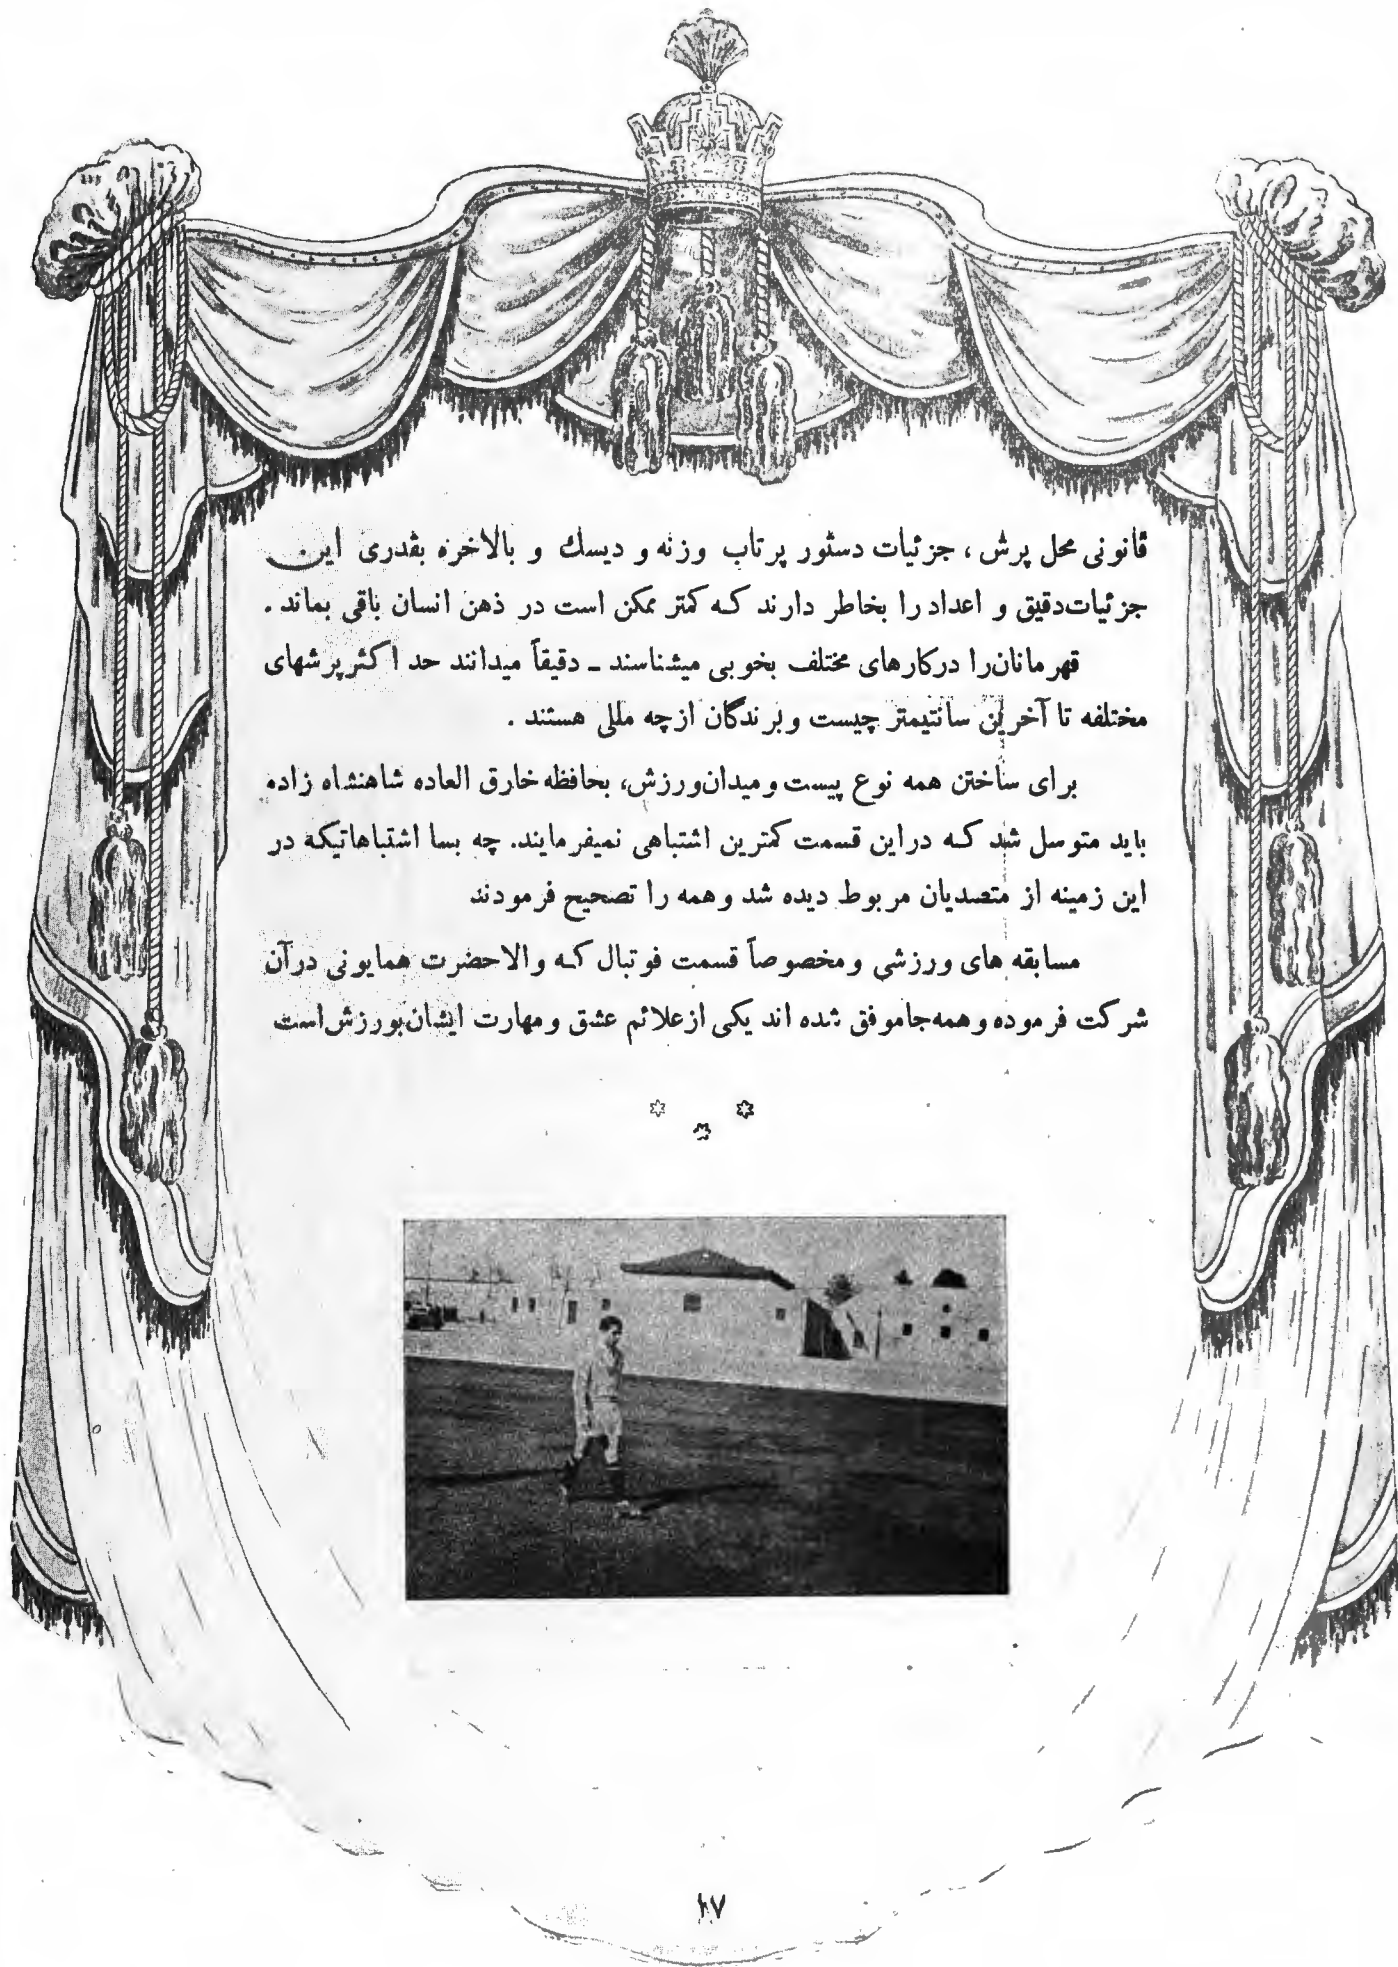 قانونی محل پرش ، جزئیات دستور پرتاب وزنه و دیسك و بالاخره بقدری این
جزئیات‌دقیق و اعداد را بخاطر دارند که کمتر ممکن است در ذهن انسان باقی بماند .
قهرمانان‌را درکارهای مختلف بخوبی میشناسند ـ دقیقاً میدانند حد اکثرپرشهای
مختلفه تا آخرین سانتیمتر چیست وبرندگان ازچه مللی هستند .
برای ساختن همه نوع پیست ومیدان‌ورزش، بحافظه خارق العاده شاهنشاه زاده
باید متوسل شد که دراین قسمت کمترین اشتباهی نمیفرمایند. چه بسا اشتباهاتیکه در
این زمینه از متصدیان مربوط دیده شد وهمه را تصحیح فرمودند
مسابقه های ورزشی ومخصوصاً قسمت فوتبال که والاحضرت همایونی درآن
شرکت فرموده وهمه‌جاموفق شده اند یکی ازعلائم عشق ومهارت ایشان‌بورزش‌است